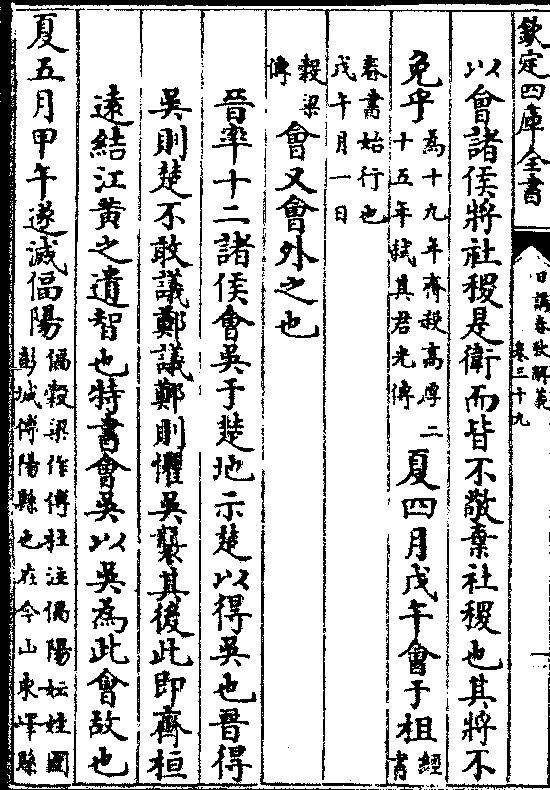 欽定四庫全書
日講春秋解義
卷三十九
以會諸侯將社稷是衛而皆不敬棄社稷也其將不
免乎
為十九年齊殺高厚二
十五年弑其君光傳
夏四月戊午會于柤
經
書
春書始行也
戊午月一日
穀梁
傳
會又會外之也
晉率十二諸侯會吳于楚地示楚以得吳也晉得
吳則楚不敢議鄭議鄭則懼吳襲其後此即齊桓
遠結江黃之遺智也特書會吳以吳為此會故也
夏五月甲午遂滅偪陽
偪穀梁作傅杜注偪陽妘姓國
彭城傅陽縣也在今山東嶧縣